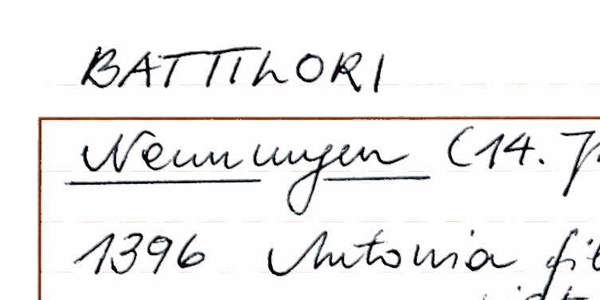 BATTILORI
Nennungen (14. J
1396 Antonia fi